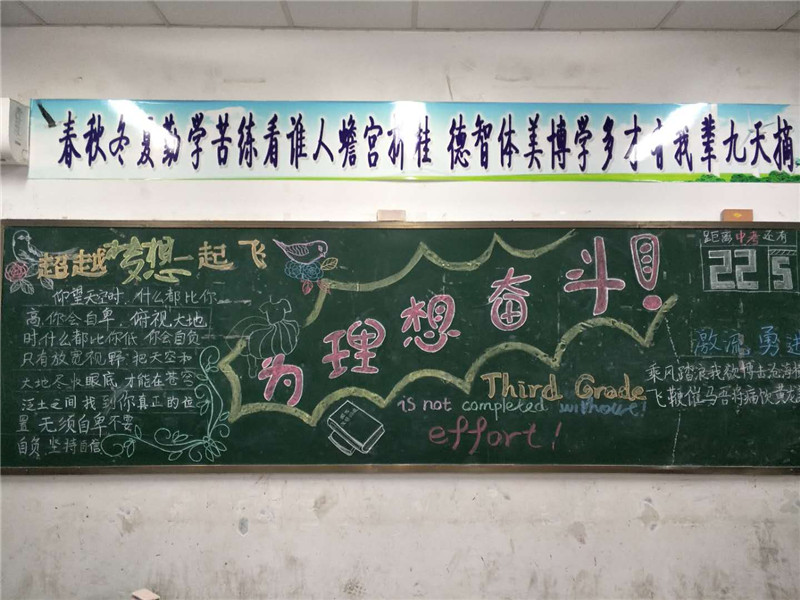 春秋冬夏勤学苦练看谁人蟾宫折桂 德智体美博学多才看我辈九天摘
超越梦想一起飞
仰望天空时,什么都比你
高,你会自卑,俯视大地
时什么都比你低 你会自负
只有放宽视野,把天空和
大地尽收眼底,才能在苍穹
泛土之间找到你真正的位
置 无须自卑不要
自负 坚持自信
为理想奋斗!
Third Grade
is not completed without!
effort!
距离中考还有
225
激流勇进
乘风踏浪我欲搏击沧海
飞鞭催马吾将痛饮黄龙